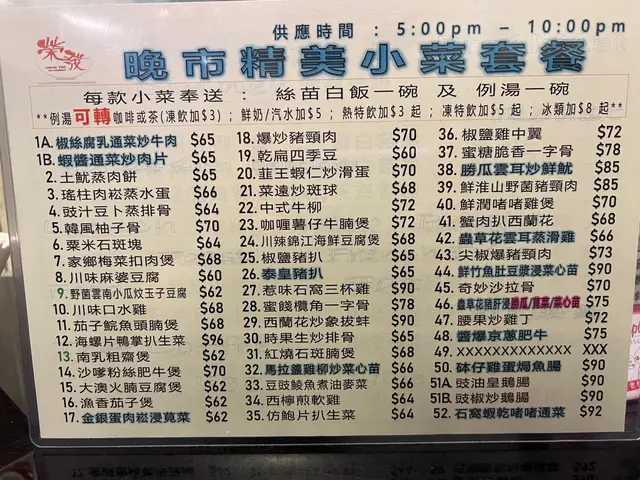 榮發
供應時間 : 5:00pm - 10:00pm
晚市精美小菜套餐
每款小菜奉送 : 絲苗白飯一碗 及 例湯一碗
**例湯可轉咖啡或茶(凍飲加$3) ; 鮮奶/汽水加$5 ; 熱特飲加$3起 ; 凍特飲加$5起 ; 冰類加$8起**
1A. 椒絲腐乳通菜炒牛肉 $65
1B. 蝦醬通菜炒肉片 $65
2. 土魷蒸肉餅 $65
3. 瑤柱肉崧蒸水蛋 $66
4. 豉汁豆卜蒸排骨 $64
5. 韓風柚子骨 $70
6. 粟米石斑塊 $64
7. 家鄉梅菜扣肉煲 $68
8. 川味麻婆豆腐 $60
9. 野菌雲南小瓜炆玉子豆腐 $62
10. 川味口水雞 $68
11. 茄子鯇魚頭腩煲 $68
12. 海螺片鴨掌扒生菜 $96
13. 南乳粗齋煲 $62
14. 沙嗲粉絲肥牛煲 $70
15. 大澳火腩豆腐煲 $62
16. 漁香茄子煲 $62
17. 金銀蛋肉崧浸莧菜 $62
18. 爆炒豬頸肉 $70
19. 乾扁四季豆 $60
20. 韮王蝦仁炒滑蛋 $70
21. 菜遠炒斑球 $68
22. 中式牛柳 $72
23. 咖喱薯仔牛腩煲 $72
24. 川辣錦江海鮮豆腐煲 $68
25. 椒鹽豬扒 $65
26. 泰皇豬扒 $65
27. 惹味石窩三杯雞 $90
28. 蜜餞欖角一字骨 $78
29. 西蘭花炒象拔蚌 $90
30. 時果生炒排骨 $65
31. 紅燒石斑腩煲 $68
32. 馬拉盞雞柳炒菜心苗 $66
33. 豆豉鯪魚煮油麥菜 $66
34. 西檸煎軟雞 $64
35. 仿鮑片扒生菜 $64
36. 椒鹽雞中翼 $72
37. 蜜糖脆香一字骨 $78
38. 勝瓜雲耳炒鮮魷 $85
39. 鮮淮山野菌豬頸肉 $85
40. 鮮潤啫啫雞煲 $70
41. 蟹肉扒西蘭花 $68
42. 蟲草花雲耳蒸滑雞 $66
43. 尖椒爆豬頸肉 $73
44. 鮮竹魚肚豆漿浸菜心苗 $90
45. 奇妙沙拉骨 $70
46. 蟲草花豬肝浸勝瓜/莧菜/菜心苗 $75
47. 腰果炒雞丁 $72
48. 醬爆京蔥肥牛 $75
49. XXXXXXXXXXXXX XXX
50. 砵仔雞蛋焗魚腸 $90
51A. 豉油皇鵝腸 $90
51B. 豉椒炒鵝腸 $90
52. 石窩蝦乾啫啫通菜 $92